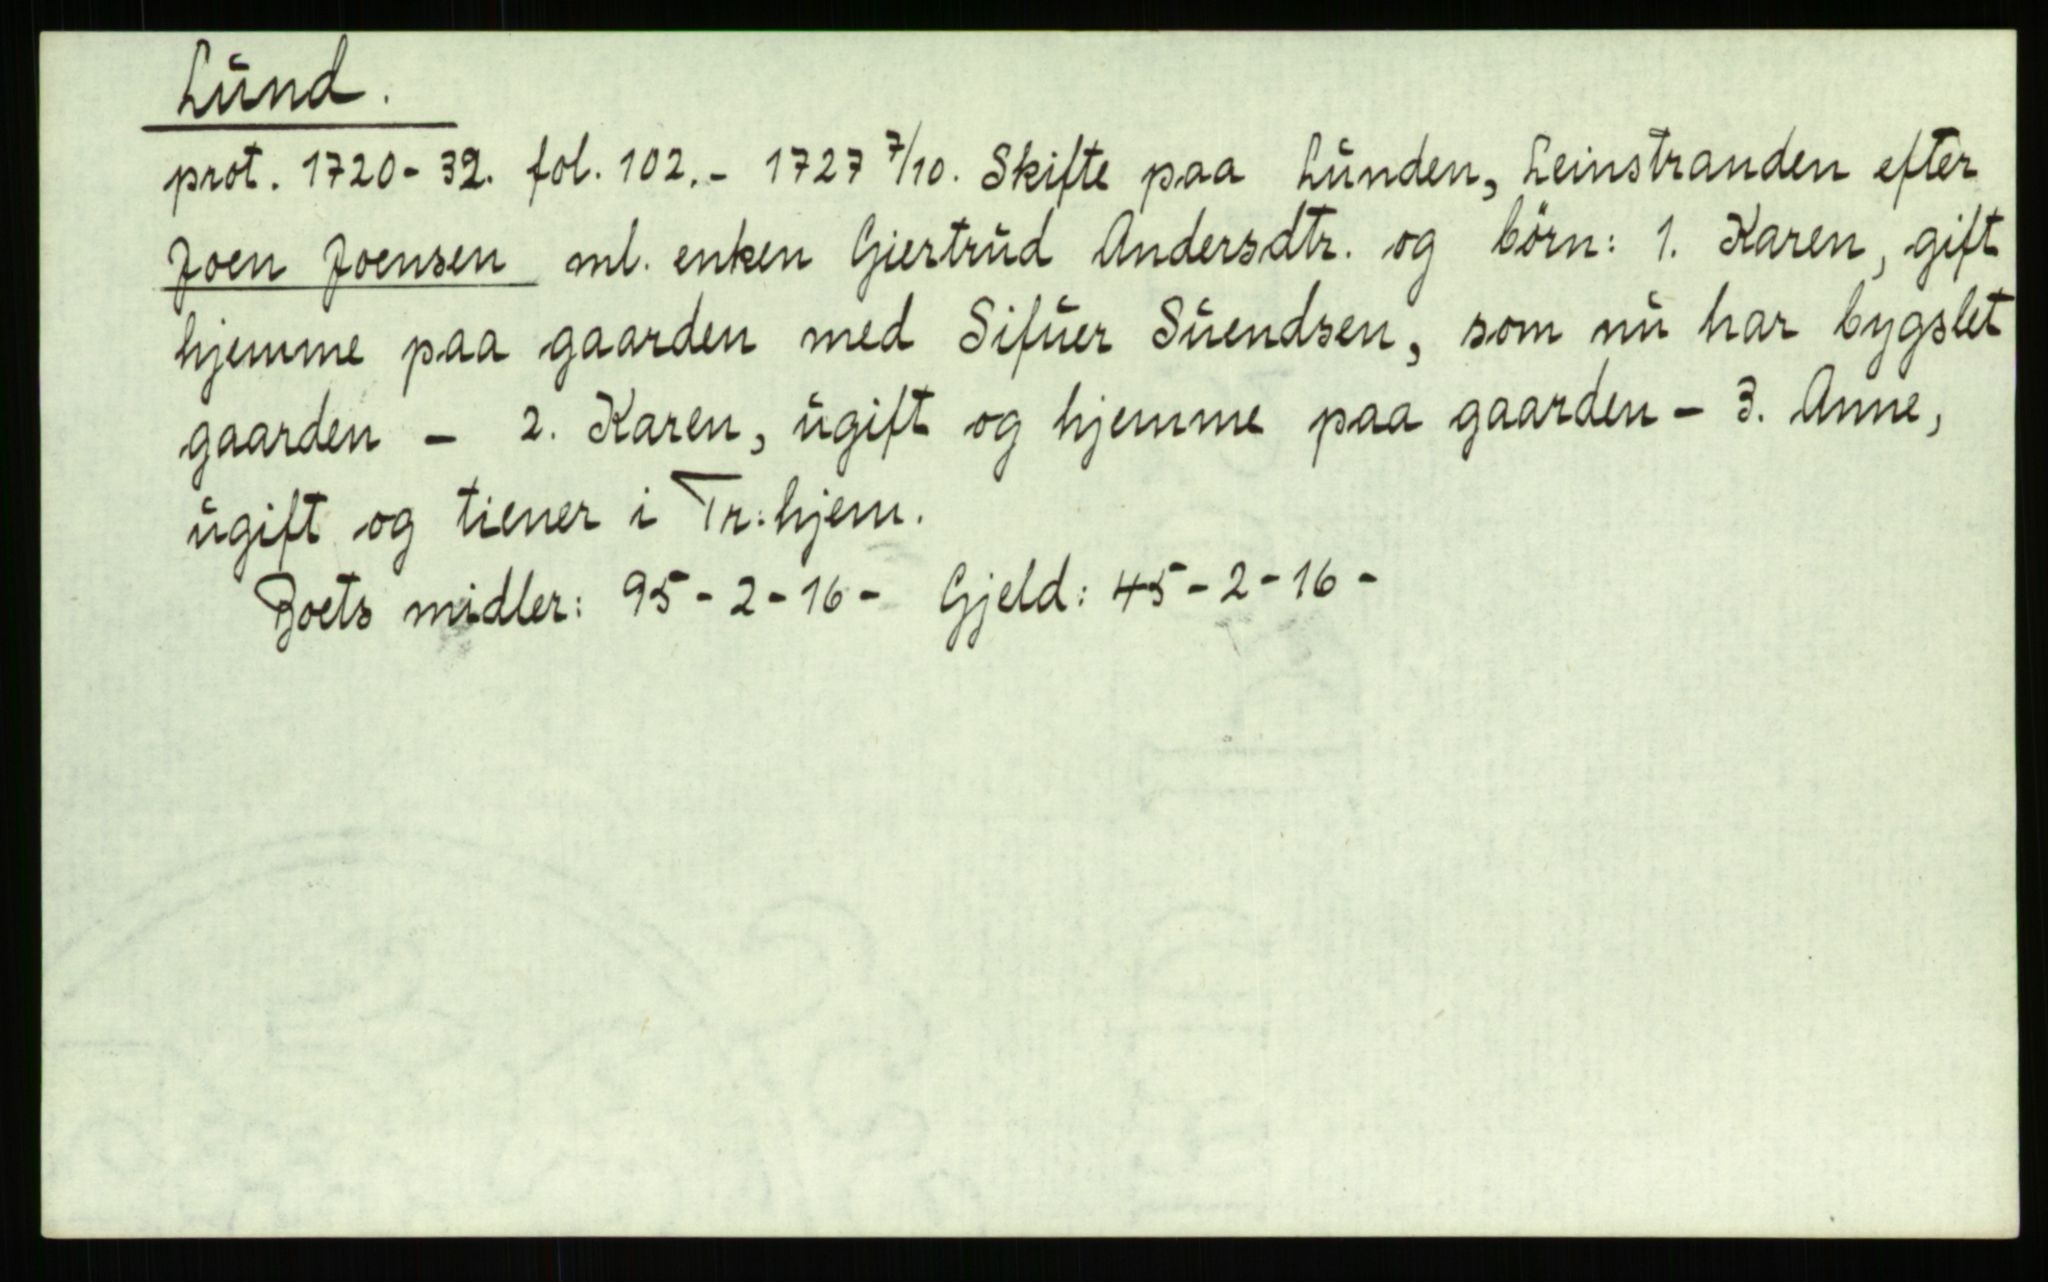 Lund.
prot. 1720-32. fol. 102.- 1727 7/10. Skifte paa Lunden, Leinstranden efter
Joen Joensen ml. enken Gjertrud Andersdtr. og börn: 1. Karen, gift
hjemme paa gaarden med Sifuer Suendsen, som nu har bygslet
gaarden - 2. Karen, ugift og hjemme paa gaarden - 3. Anne,
ugift og tiener i Tr:hjem.
Boets midler: 95-2-16- Gjeld: 45-2-16-